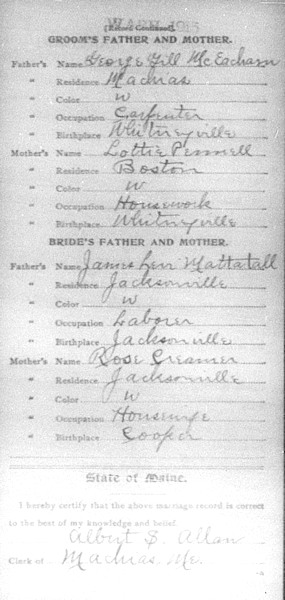 MAR 1915
[Record Continued]
GROOM'S FATHER AND MOTHER.
Father's Name George Gill McEacharn
" Residence Machias
" Color W
" Occupation Carpenter
" Birthplace Whitneyville
Mother's Name Lottie Pennell
" Residence Boston
" Color W
" Occupation Housework
" Birthplace Whitneyville
BRIDE'S FATHER AND MOTHER.
Father's Name James Levi Mattatall
" Residence Jacksonville
" Color W
" Occupation Laborer
" Birthplace Jacksonville
Mother's Name Rose Creamer
" Residence Jacksonville
" Color W
" Occupation Housewife
" Birthplace Cooper
State of Maine.
I hereby certify that the above marriage record is correct
to the best of my knowledge and belief.
Albert S. Allan
Clerk of Machias, Me.